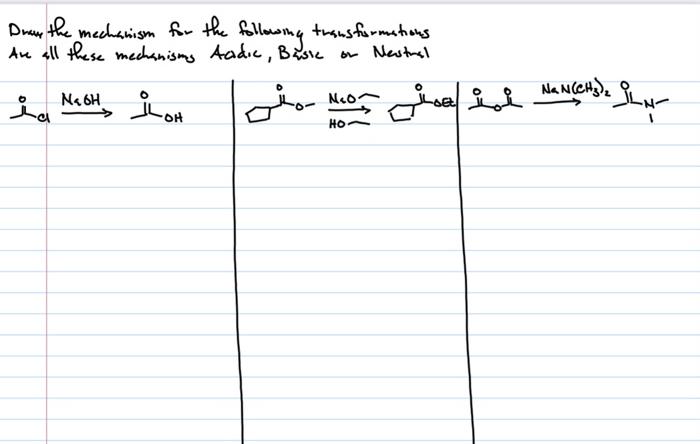 Draw the mechanism for the following transformations
Are all these mechanisms Acidic, Basic or Neutral
O
Cl
NaOH
O
OH
O
O
NaO
HO
O
OEt
O
O
O
NaN(CH3)2
O
N